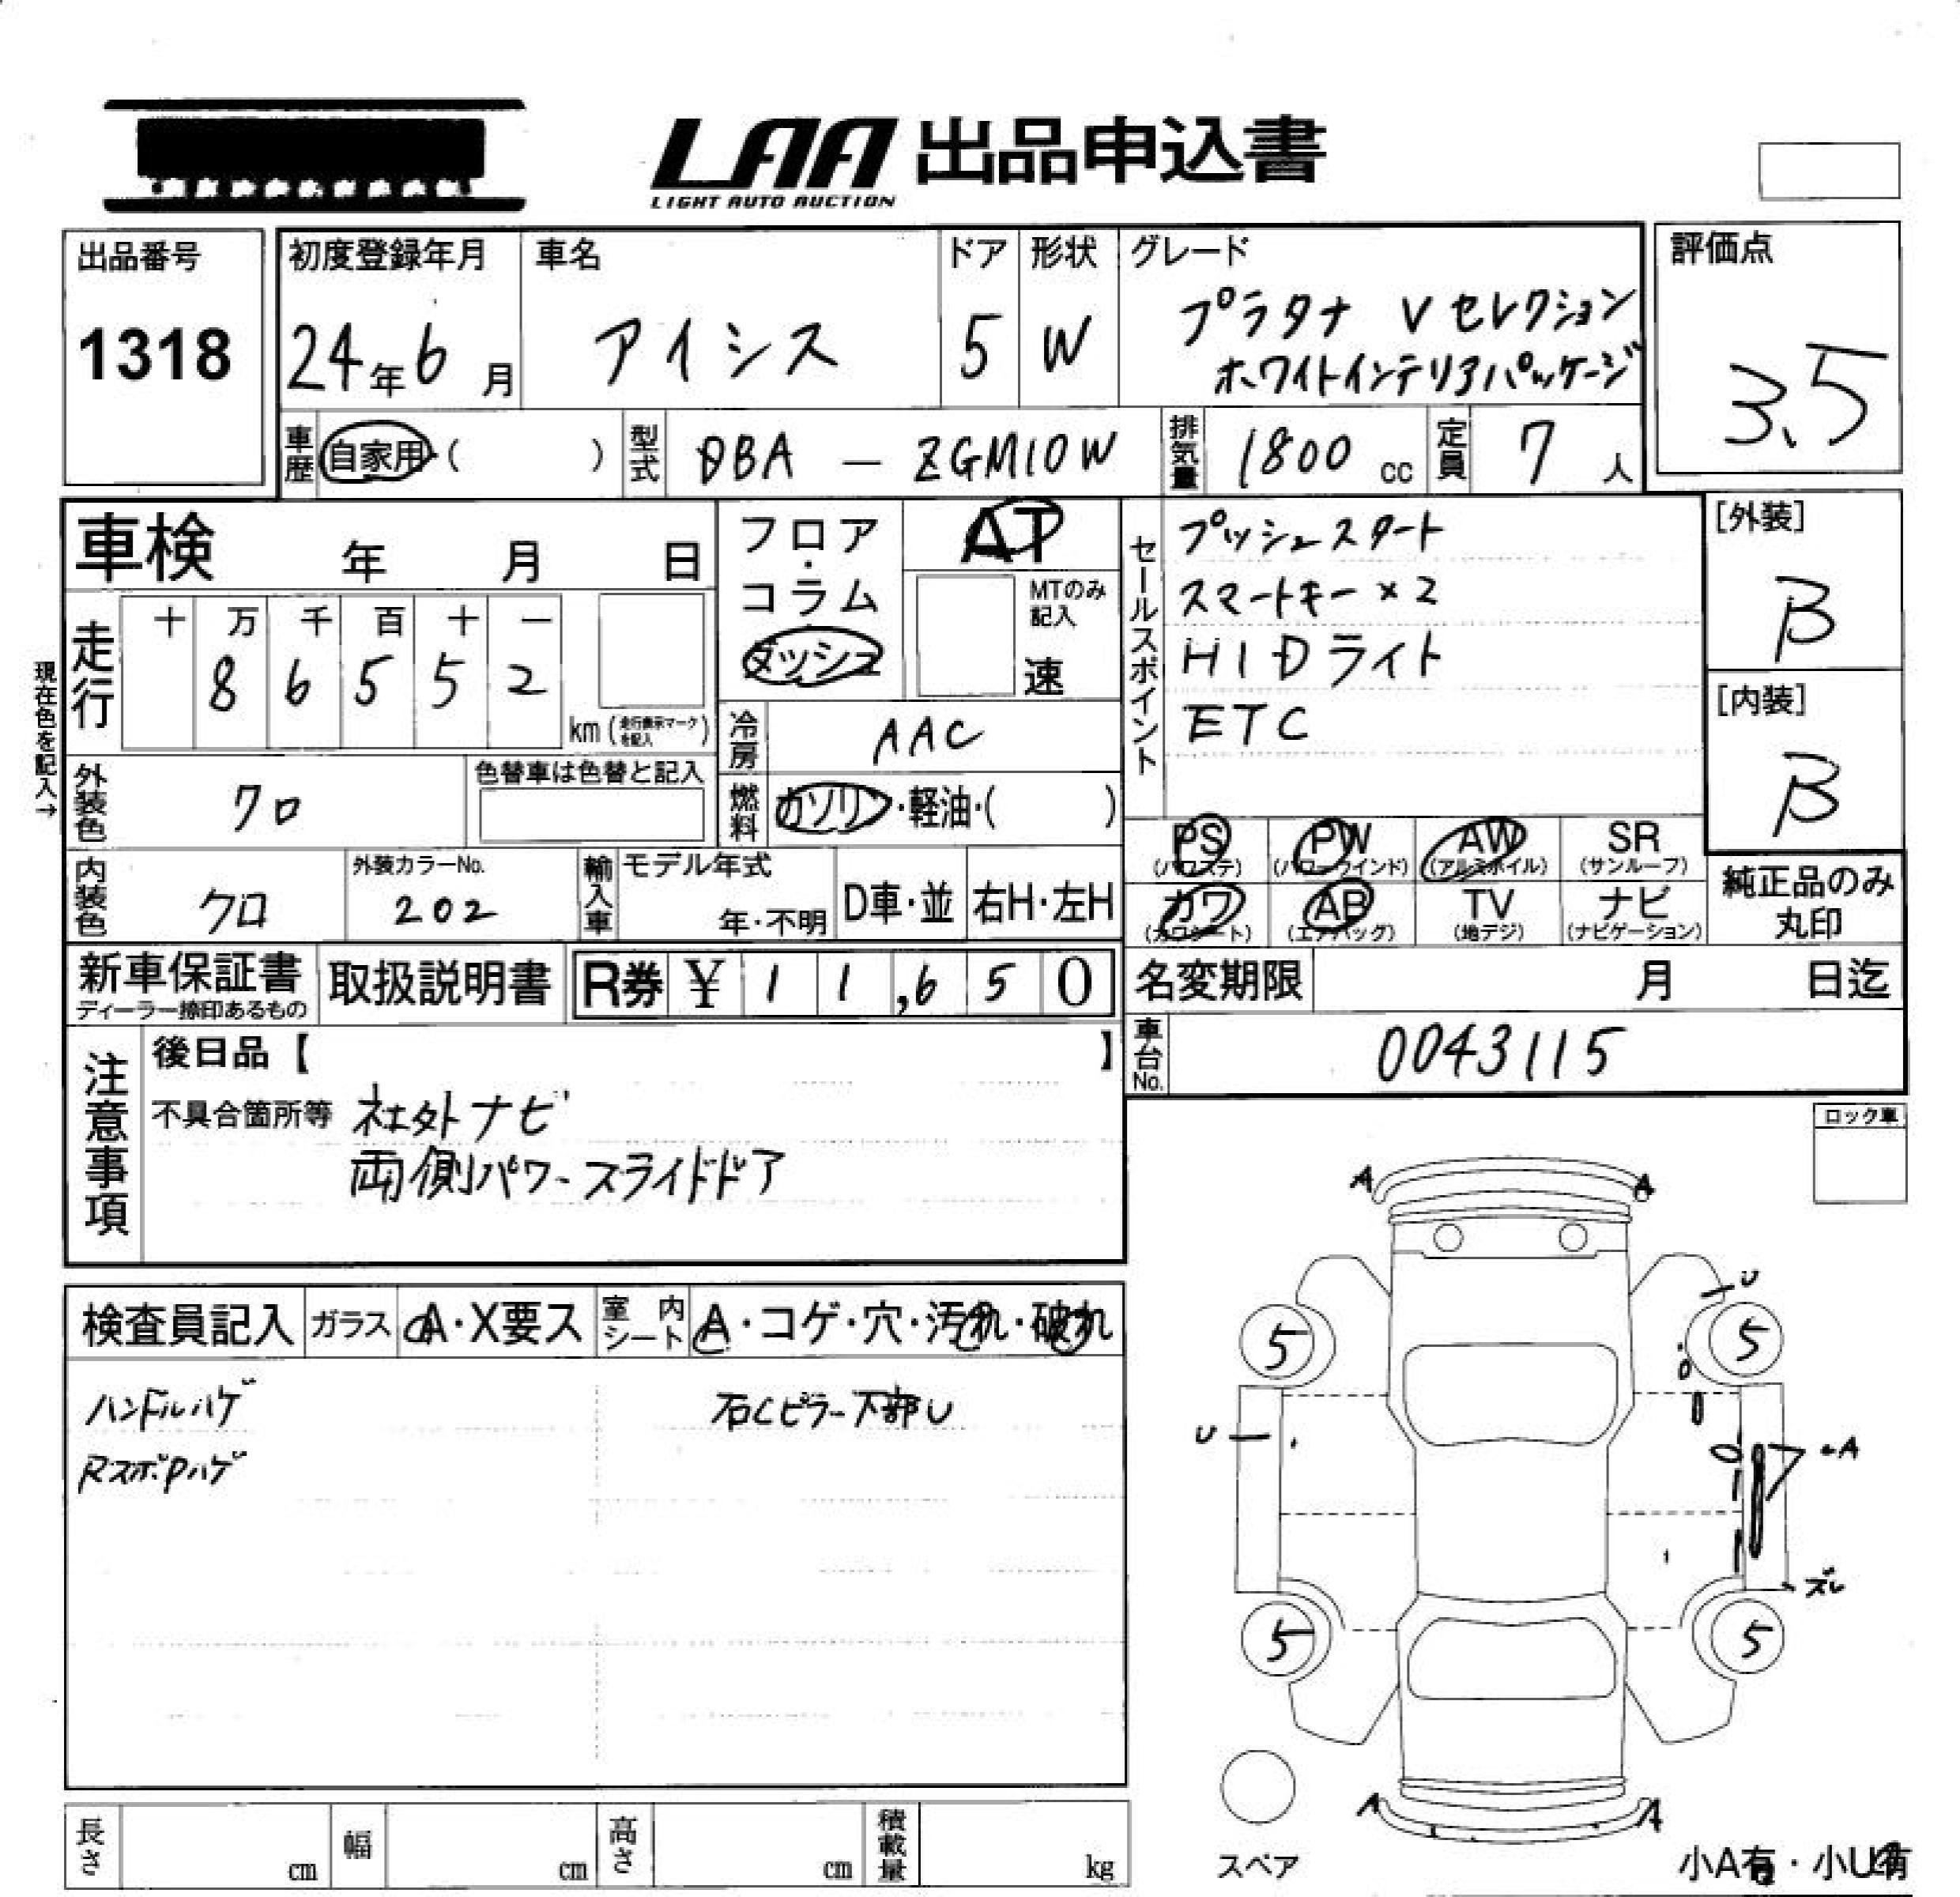 LAA 出品申込書
LIGHT AUTO AUCTION
出品番号
1318
初度登録年月
24年6月
車名
アイシス
ドア
5
形状
W
グレード
プラタナ Vセレクション
ホワイトインテリアパッケージ
評価点
3.5
車歴
自家用・( )
型式
DBA — ZGM10W
排気量
1800 cc
定員
7 人
車検 年 月 日
現在色を記入→
走行
十 万 千 百 十 一
8 6 5 5 2
km (走行表示マークを記入)
フロア・コラム
ダッシュ
AT
MTのみ記入
速
冷房
AAC
燃料
ガソリン・軽油・( )
セールスポイント
プッシュスタート
スマートキー×2
HIDライト
ETC
[外装]
B
[内装]
B
外装色
クロ
色替車は色替と記入
内装色
クロ
外装カラーNo.
202
輸入車
モデル年式
年・不明
D車・並
右H・左H
PS
(パワステ)
PW
(パワーウインド)
AW
(アルミホイル)
SR
(サンルーフ)
カワ
(カワシート)
AB
(エアバッグ)
TV
(地デジ)
ナビ
(ナビゲーション)
純正品のみ
丸印
新車保証書
ディーラー捺印あるもの
取扱説明書
R券 ¥ 1 1,6 5 0
名変期限 月 日迄
車台No.
0043115
注意事項
後日品【 】
不具合箇所等 社外ナビ
両側パワースライドドア
ロック車
検査員記入
ガラス
A・X要ス
室内シート
A・コゲ・穴・汚れ・破れ
ハンドルハゲ
石Cピラー下部U
RスポPハゲ
A A
U
5 5
U
A
ズレ
5 5
A A
スペア
小A有・小U有
長さ cm
幅 cm
高さ cm
積載量 kg